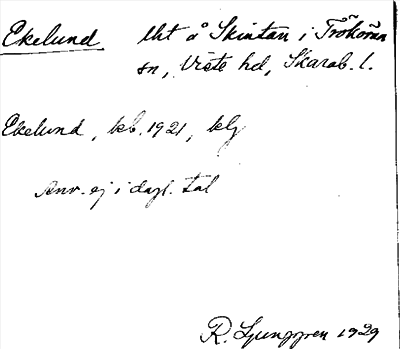 Ekelund lht å Skintan i Trökörna
sn, Viste hd, Skarab. l.
Ekelund, kb. 1921, klg
Anv. ej i dagl. tal
R. Ljunggren 1929